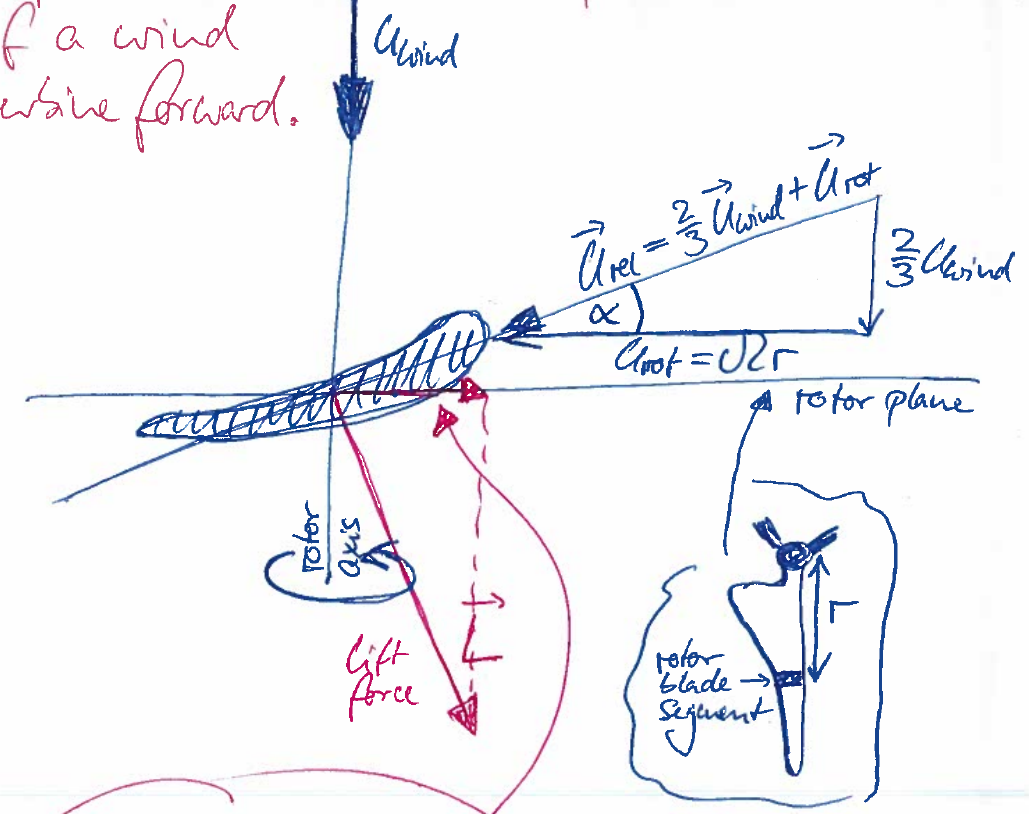 f a wind
urbine forward.
u_wind
u⃗_rel = 2/3 u⃗_wind + u⃗_rot
2/3 u_wind
α
u_rot = Ωr
rotor plane
rotor
axis
r
lift
force
L⃗
rotor
blade
segment